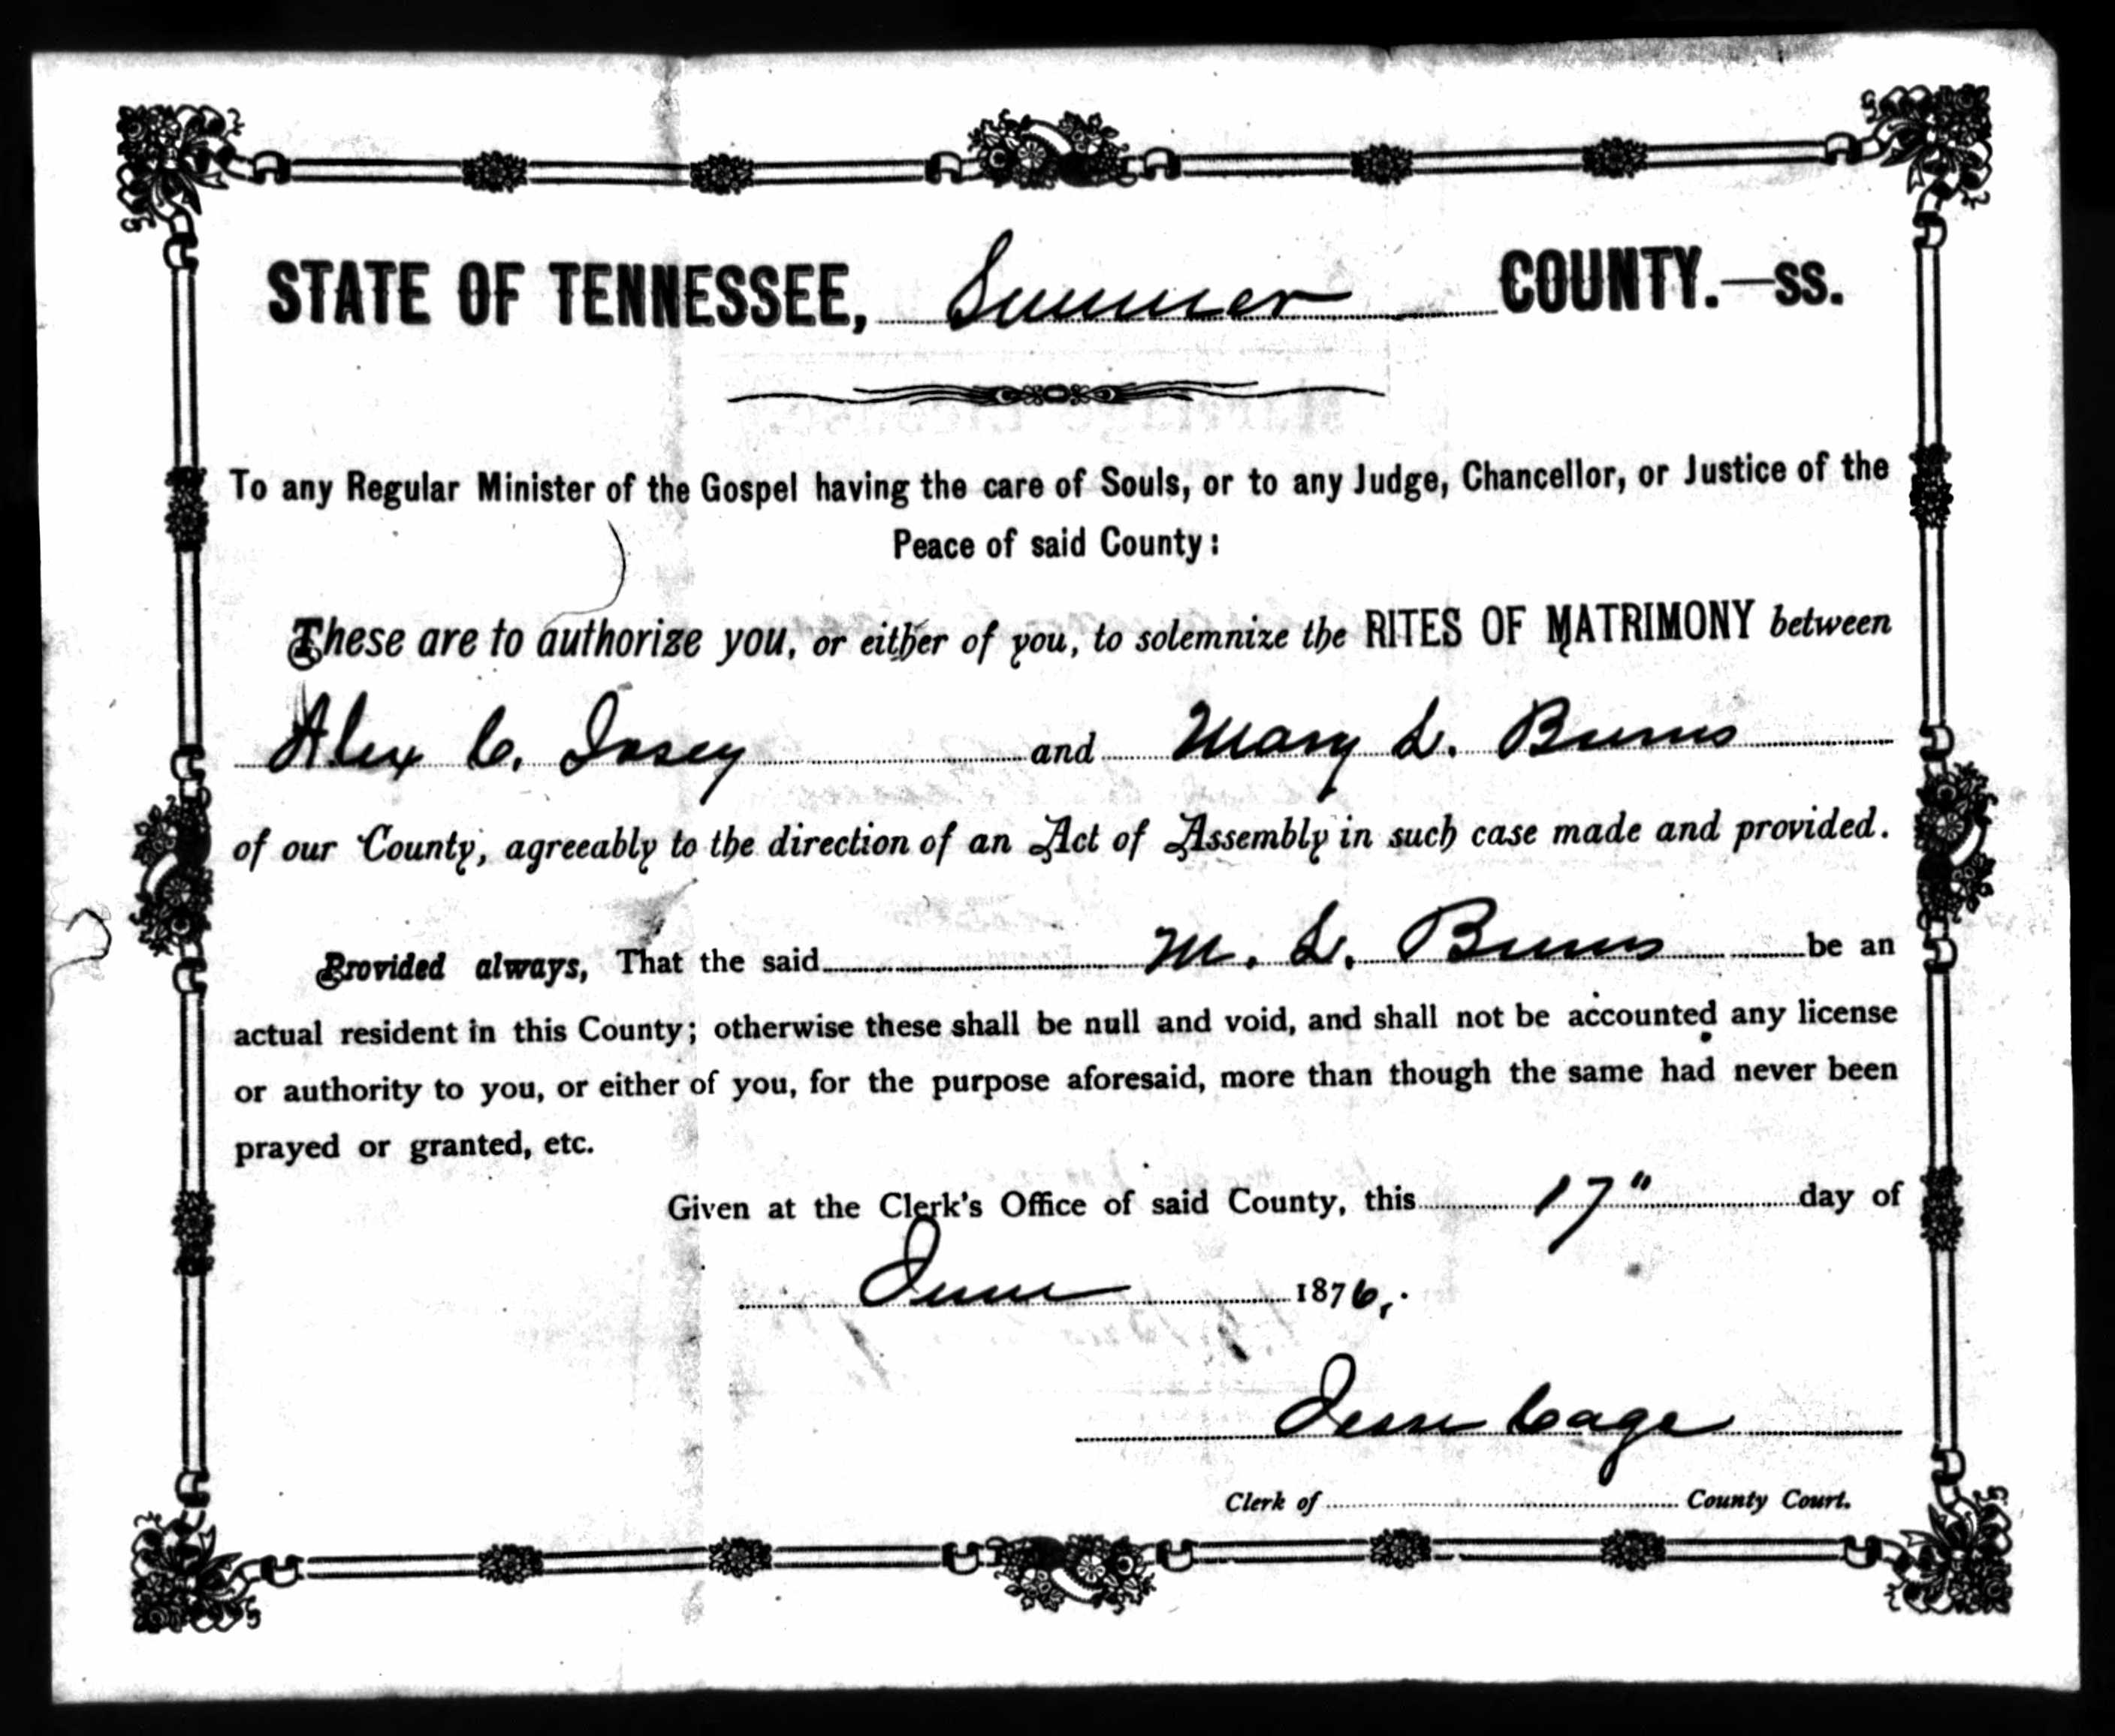 STATE OF TENNESSEE, Sumner COUNTY.—ss.
To any Regular Minister of the Gospel having the care of Souls, or to any Judge, Chancellor, or Justice of the
Peace of said County:
These are to authorize you, or either of you, to solemnize the RITES OF MATRIMONY between
Alex C. Josey and Mary L. Burns
of our County, agreeably to the direction of an Act of Assembly in such case made and provided.
Provided always, That the said M. L. Burns be an
actual resident in this County; otherwise these shall be null and void, and shall not be accounted any license
or authority to you, or either of you, for the purpose aforesaid, more than though the same had never been
prayed or granted, etc.
Given at the Clerk's Office of said County, this 17" day of
June 1876,.
Jesse Cage
Clerk of County Court.